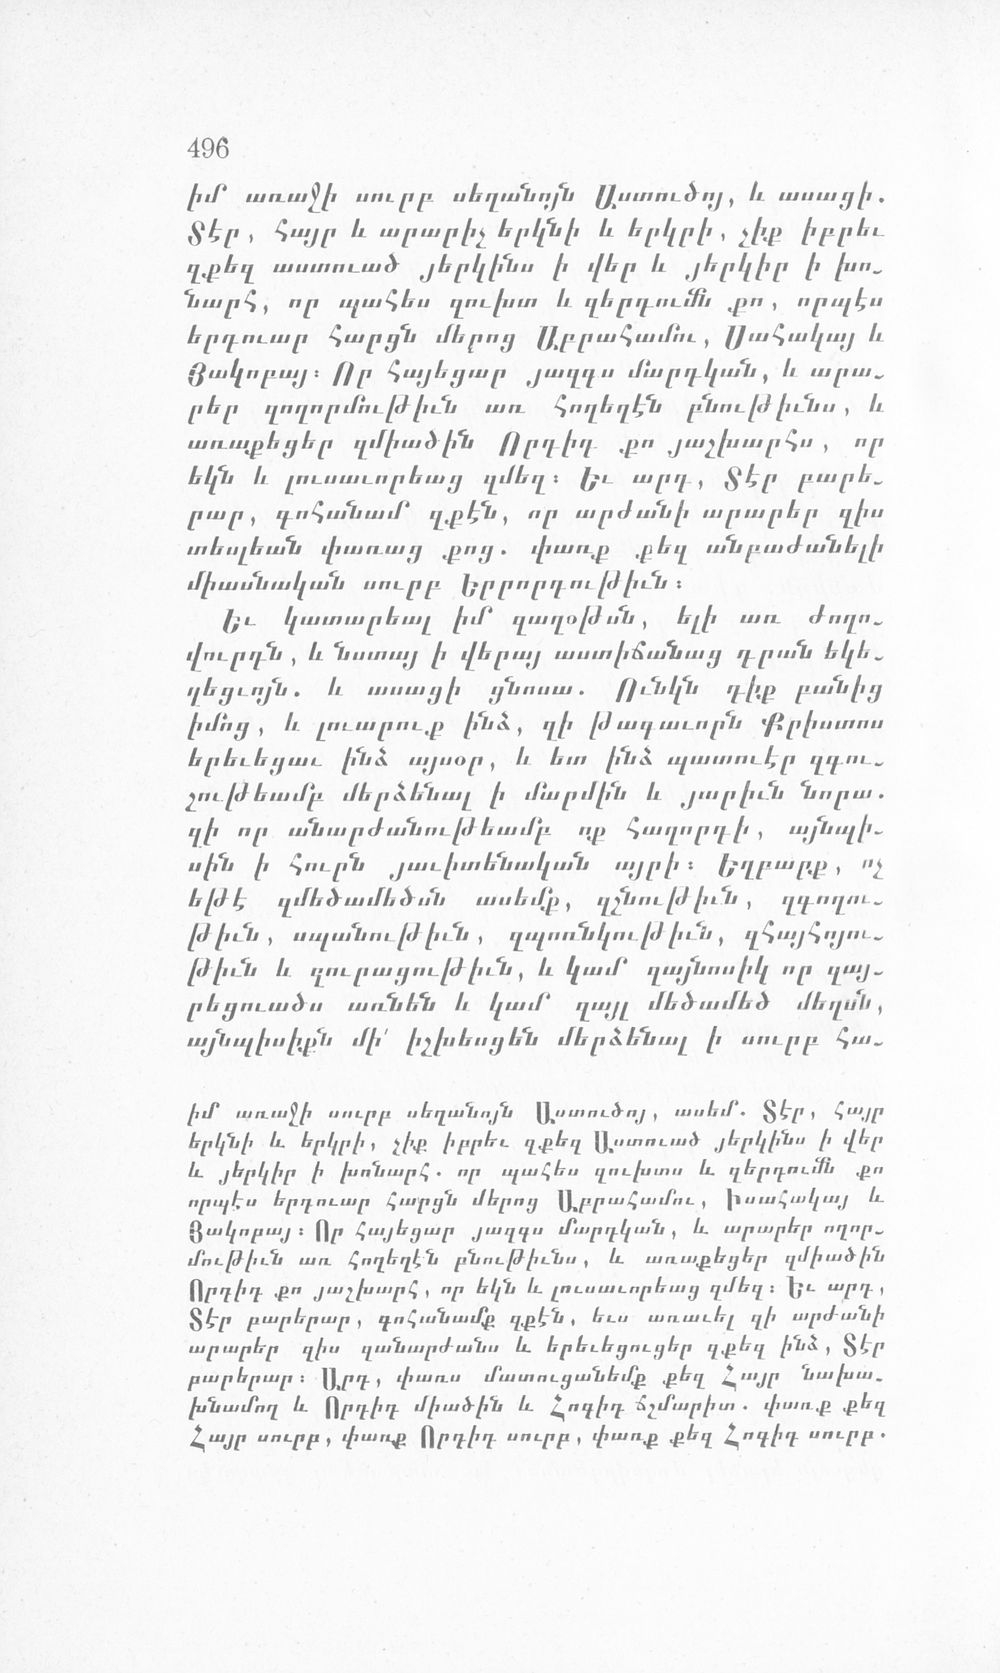 496
իմ առաջի սուրբ սեղանոյն Աստուծոյ, և ասացի.
Տէր, Հայր և արարիչ երկնի և երկրի, չիք իբրեւ
զքեզ աստուած յերկինս ի վեր և յերկիր ի խո֊
նարհ, որ պահես զուխտ և զերդումն քո, որպէս
երդուար հարցն մերոց Աբրահամու, Սահակայ և
Յակոբայ։ Որ հայեցար յազգս մարդկան, և արա֊
րեր զողորմութիւն առ հողեղէն բնութիւնս, և
առաքեցեր զմիածին Որդիդ քո յաշխարհս, որ
եկն և լուսաւորեաց զմեզ։ Եւ արդ, Տէր բարե֊
րար, գոհանամ զքէն, որ արժանի արարեր զիս
տեսլեան փառաց քոց. փառք քեզ անբաժանելի
միասնական սուրբ Երրորդութիւն։
Եւ կատարեալ իմ զաղօթսն, ելի առ ժողո֊
վուրդն, և նստայ ի վերայ աստիճանաց դրան եկե֊
ղեցւոյն. և ասացի ցնոսա. Ունկն դիք բանից
իմոց, և լուարուք ինձ, զի թագաւորն Քրիստոս
երեւեցաւ ինձ այսօր, և ետ ինձ պատուէր զգու֊
շութեամբ մերձենալ ի մարմին և յարիւն նորա.
զի որ անարժանութեամբ ոք հաղորդի, այնպի֊
սին ի հուրն յաւիտենական այրի։ Եղբարք, ոչ
եթէ զմեծամեծսն ասեմք, զշնութիւն, զգողու֊
թիւն, սպանութիւն, զպոռնկութիւն, զհայհոյու֊
թիւն և զուրացութիւն, և կամ զայնոսիկ որ զայ֊
րեցուածս առնեն և կամ զայլ մեծամեծ մեղսն,
այնպիսիքն մի՛ իշխեսցեն մերձենալ ի սուրբ հա֊
իմ առաջի սուրբ սեղանոյն Աստուծոյ, ասեմ. Տէր, Հայր
երկնի և երկրի, չիք իբրեւ զքեզ Աստուած յերկինս ի վեր
և յերկիր ի խոնարհ. որ պահես զուխտս և զերդումն քո
որպէս երդուար հարցն մերոց Աբրահամու, Իսահակայ և
Յակոբայ։ Որ հայեցար յազգս մարդկան, և արարեր ողոր֊
մութիւն առ հողեղէն բնութիւնս, և առաքեցեր զմիածին
Որդիդ քո յաշխարհ, որ եկն և լուսաւորեաց զմեզ։ Եւ արդ,
Տէր բարերար, գոհանամք զքէն, եւս առաւել զի արժանի
արարեր զիս զանարժանս և երեւեցուցեր զքեզ ինձ, Տէր
բարերար։ Արդ, փառս մատուցանեմք քեզ Հայր նախա֊
խնամող և Որդիդ միածին և Հոգիդ ճշմարիտ. փառք քեզ
Հայր սուրբ, փառք Որդիդ սուրբ, փառք քեզ Հոգիդ սուրբ.